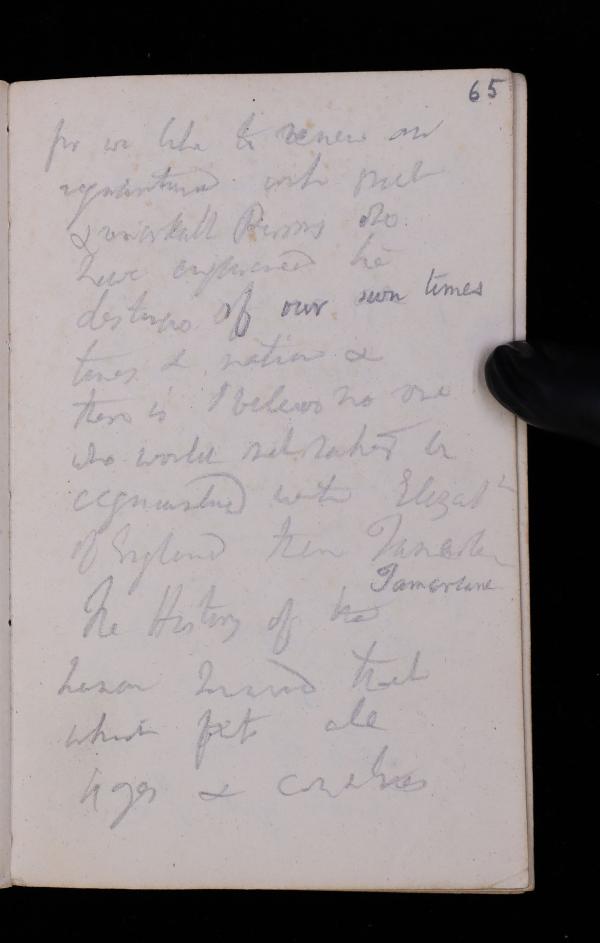 65
for we like to renew our
acquaintance with such
remarkable Persons who
have engraved the
destinies of our own times
times & nation &
there is I believe no one
who would not rather be
acquainted with Elizabth
of England than Tamerlan
Tamerlane
The History of the
human mind that
which fits all
ages & countries